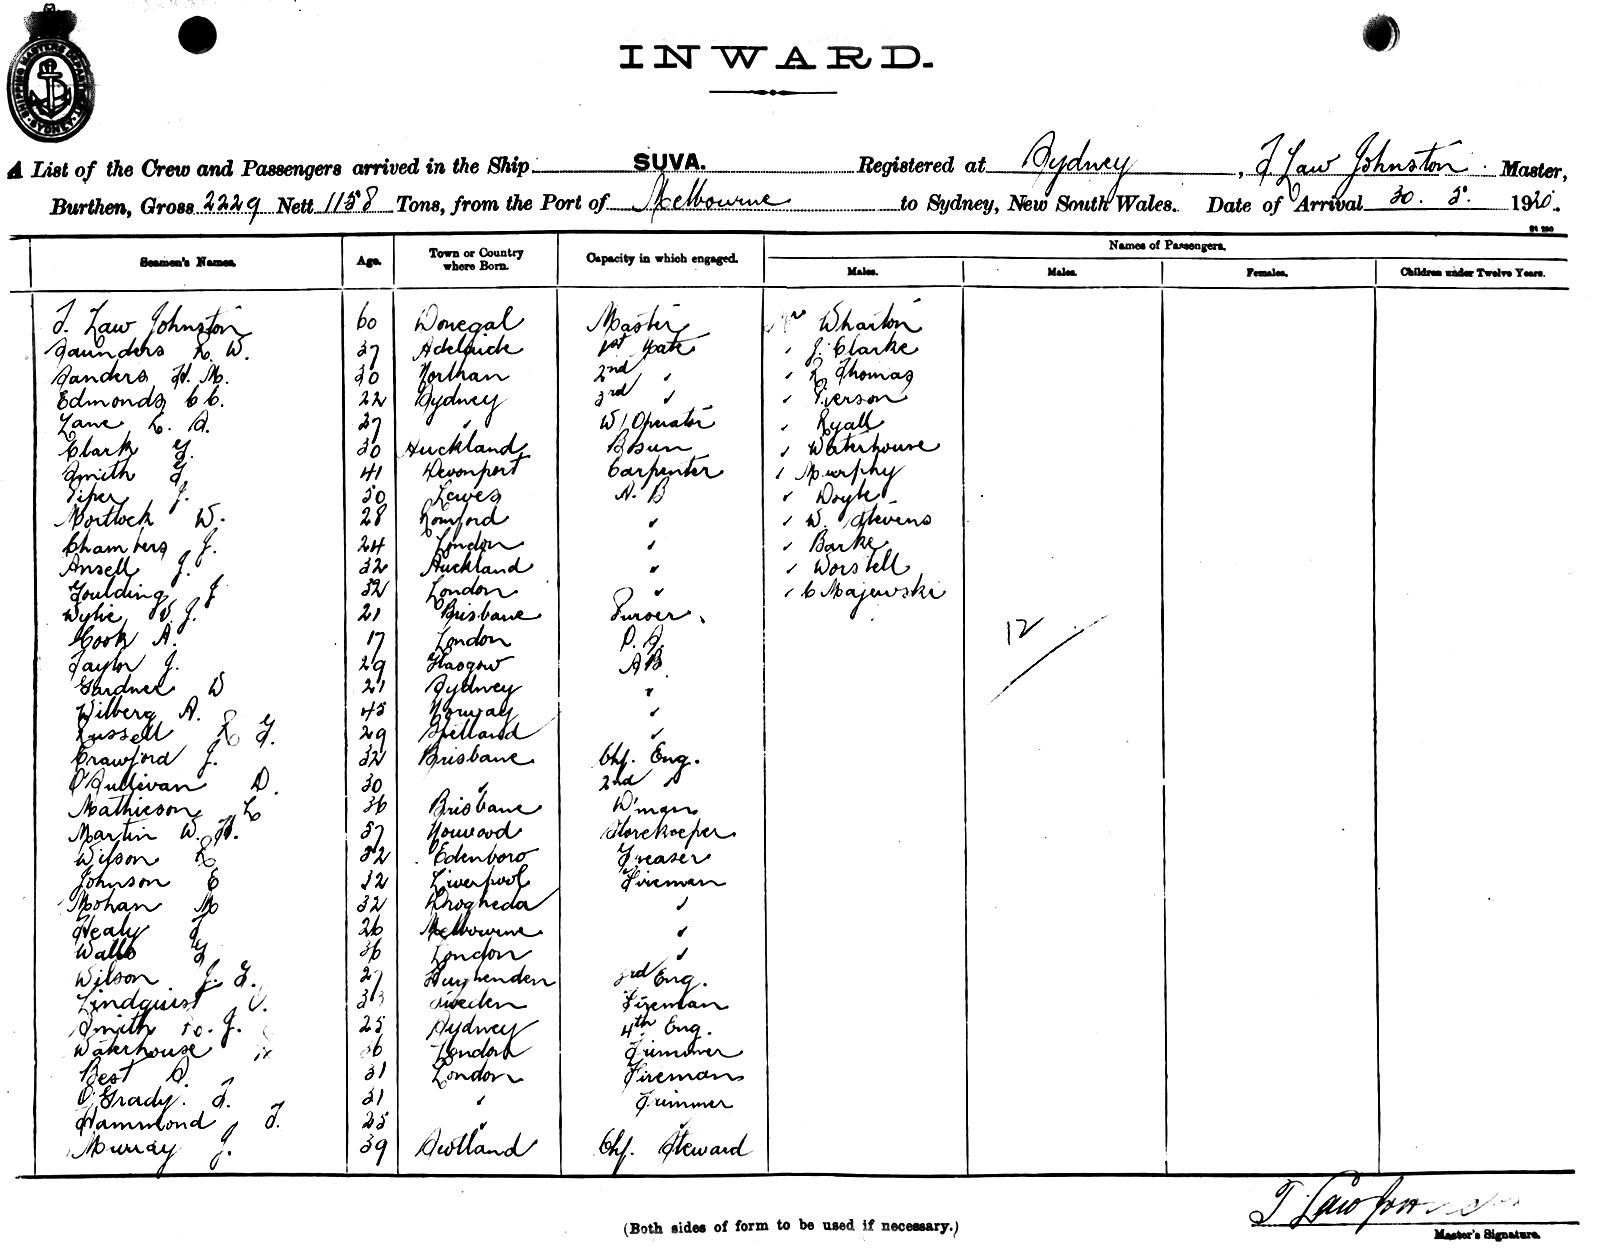 SHIPPING MASTERS DEPARTMENT SYDNEY
INWARD.
A List of the Crew and Passengers arrived in the Ship SUVA. Registered at Sydney, T Law Johnston Master,
Burthen, Gross 2229 Nett 1158 Tons, from the Port of Melbourne to Sydney, New South Wales. Date of Arrival 30. 5. 1920.
Seamen's Names. Age. Town or Country where Born. Capacity in which engaged. Names of Passengers.
Males. Males. Females. Children under Twelve Years.
T. Law Johnston 60 Donegal Master Mr Wharton
Saunders R. W. 37 Adelaide 1st Mate " J. Clarke
Sanders H. M. 30 Northan 2nd " " R. Thomas
Edmonds C C. 22 Sydney 3rd " " Pierson
Lane L. S. 27 " W/Operator " Ryall
Clark G. 30 Auckland Bosun " Waterhouse
Smith G 41 Devonport Carpenter " Murphy
Piper J. 50 Lewes A. B " Doyle
Mortlock W. 28 Romford " " W. Stevens
Chambers J. 24 London " " Barke
Ansell J. 32 Auckland " " Worstell
Goulding J 32 London " " C Majewski
Wylie J. 21 Brisbane Purser.
Cook A. 17 London 12
Taylor J. 29 Glasgow AB
Gardner W 21 Sydney "
Wilberg A. 45 Norway "
Russell R G. 29 "
Crawford J. 32 Brisbane Chf. Eng.
O'Sullivan D. 30 " 2nd "
Mathieson L 36 Brisbane W'man
Martin W. H. 57 Norwood Storekeeper
Wilson R 52 Edenboro Greaser
Johnson E 32 Liverpool Fireman
Mohan M 32 Drogheda "
Healy T 26 Melbourne "
Walls G 36 London "
Wilson J. G. 27 Hughenden 3rd Eng.
Lindquist 33 Sweden Fireman
Smith J. 25 Sydney 4th Eng.
Waterhouse 36 London Trimmer
Best S. 31 London Fireman
O'Grady. T. 31 " Trimmer
Hammond T. 25 " "
Murray J. 39 Scotland Chf. Steward
T Law John
(Both sides of form to be used if necessary.) Master's Signature.